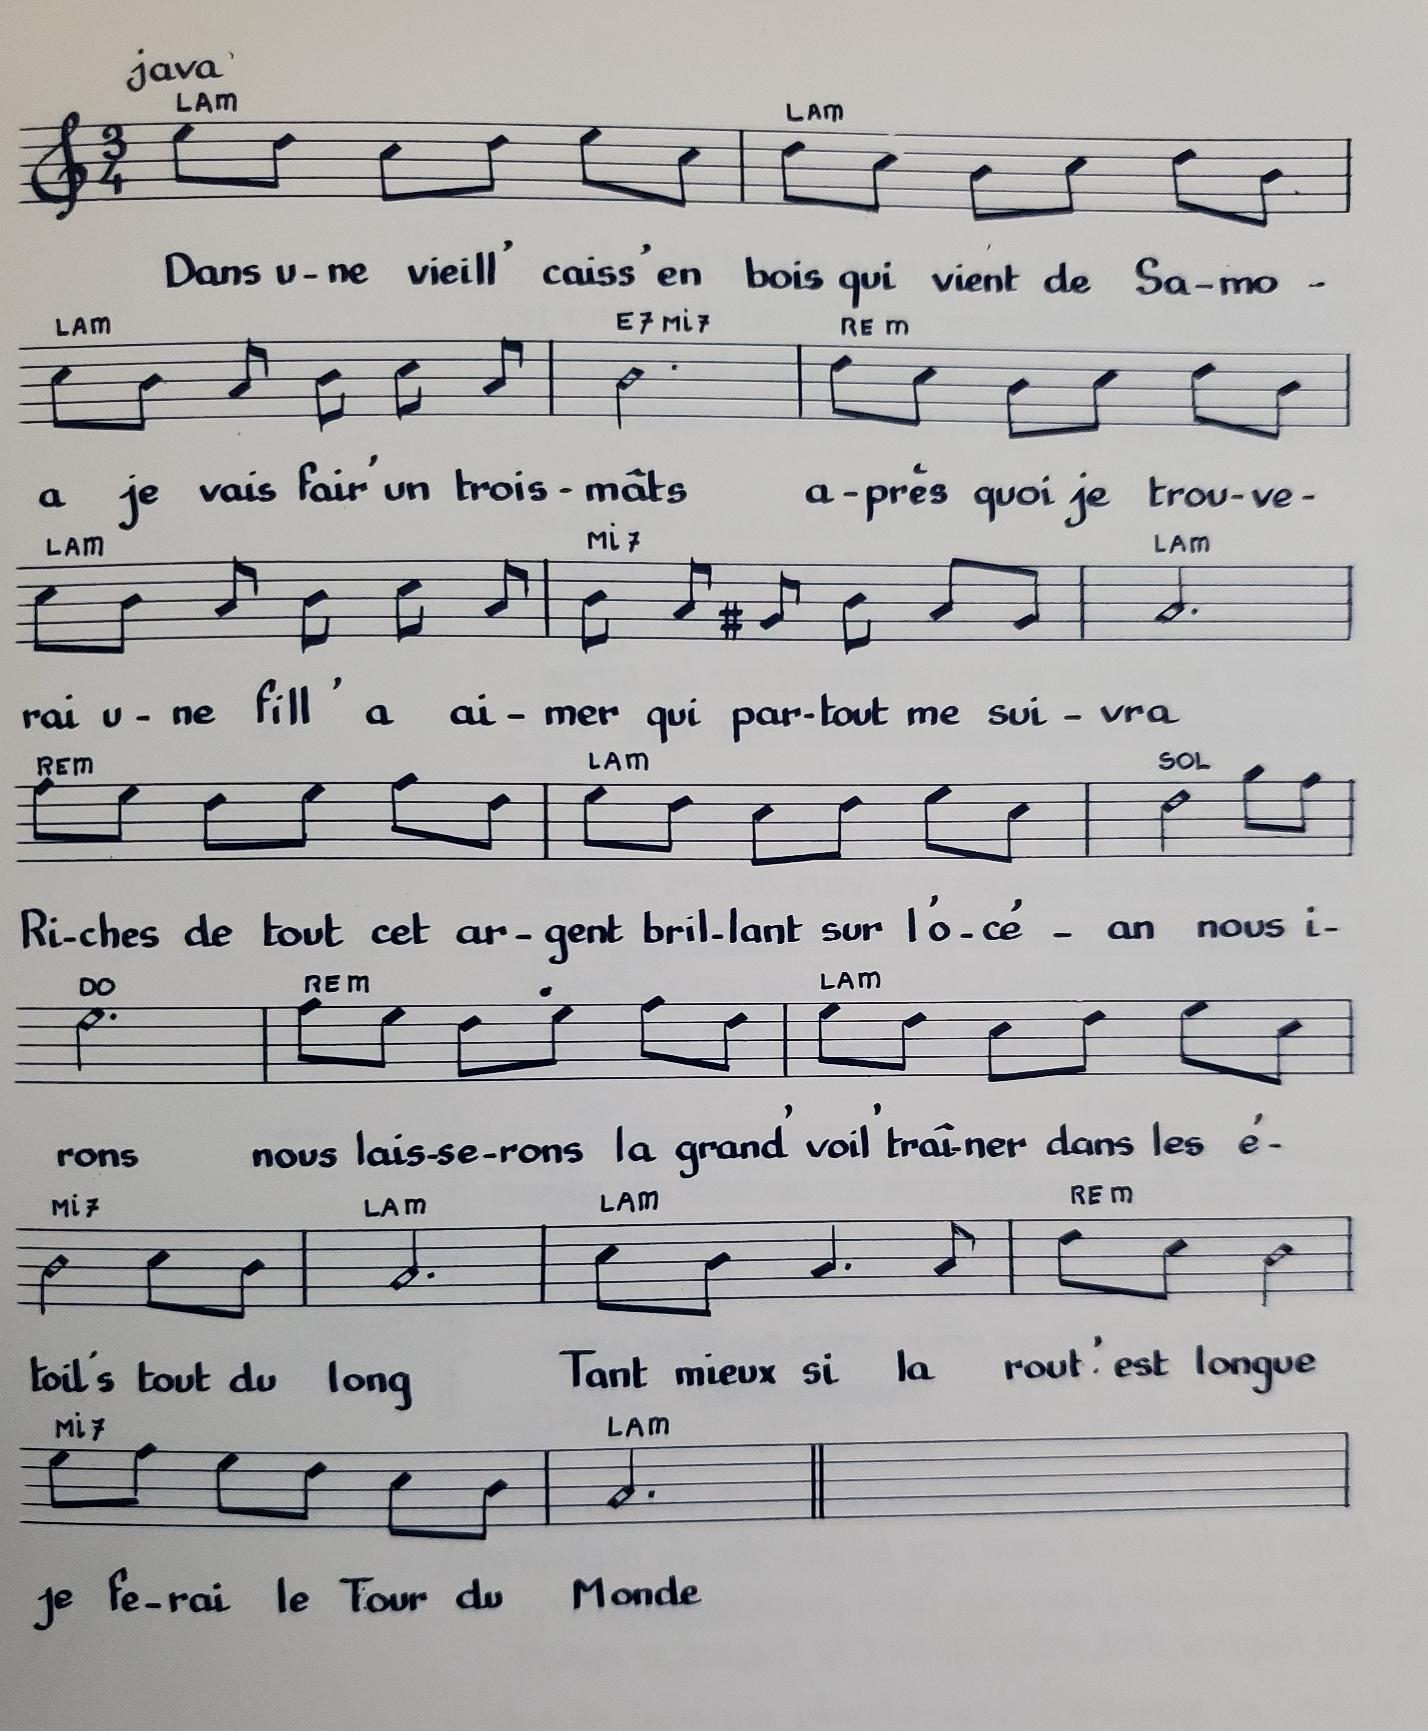 java
LAm LAm
3
4
Dans u-ne vieill' caiss'en bois qui vient de Sa-mo -
LAm E7 Mi7 REm
a je vais fair'un trois-mâts a-près quoi je trou-ve-
LAm Mi7 LAm
rai u-ne fill' a ai-mer qui par-tout me sui-vra
REm LAm SOL
Ri-ches de tout cet ar-gent bril-lant sur l'o-cé - an nous i-
DO REm LAm
rons nous lais-se-rons la grand' voil' traî-ner dans les é-
Mi7 LAm LAm REm
toil's tout du long Tant mieux si la rout' est longue
Mi7 LAm
je fe-rai le Tour du Monde